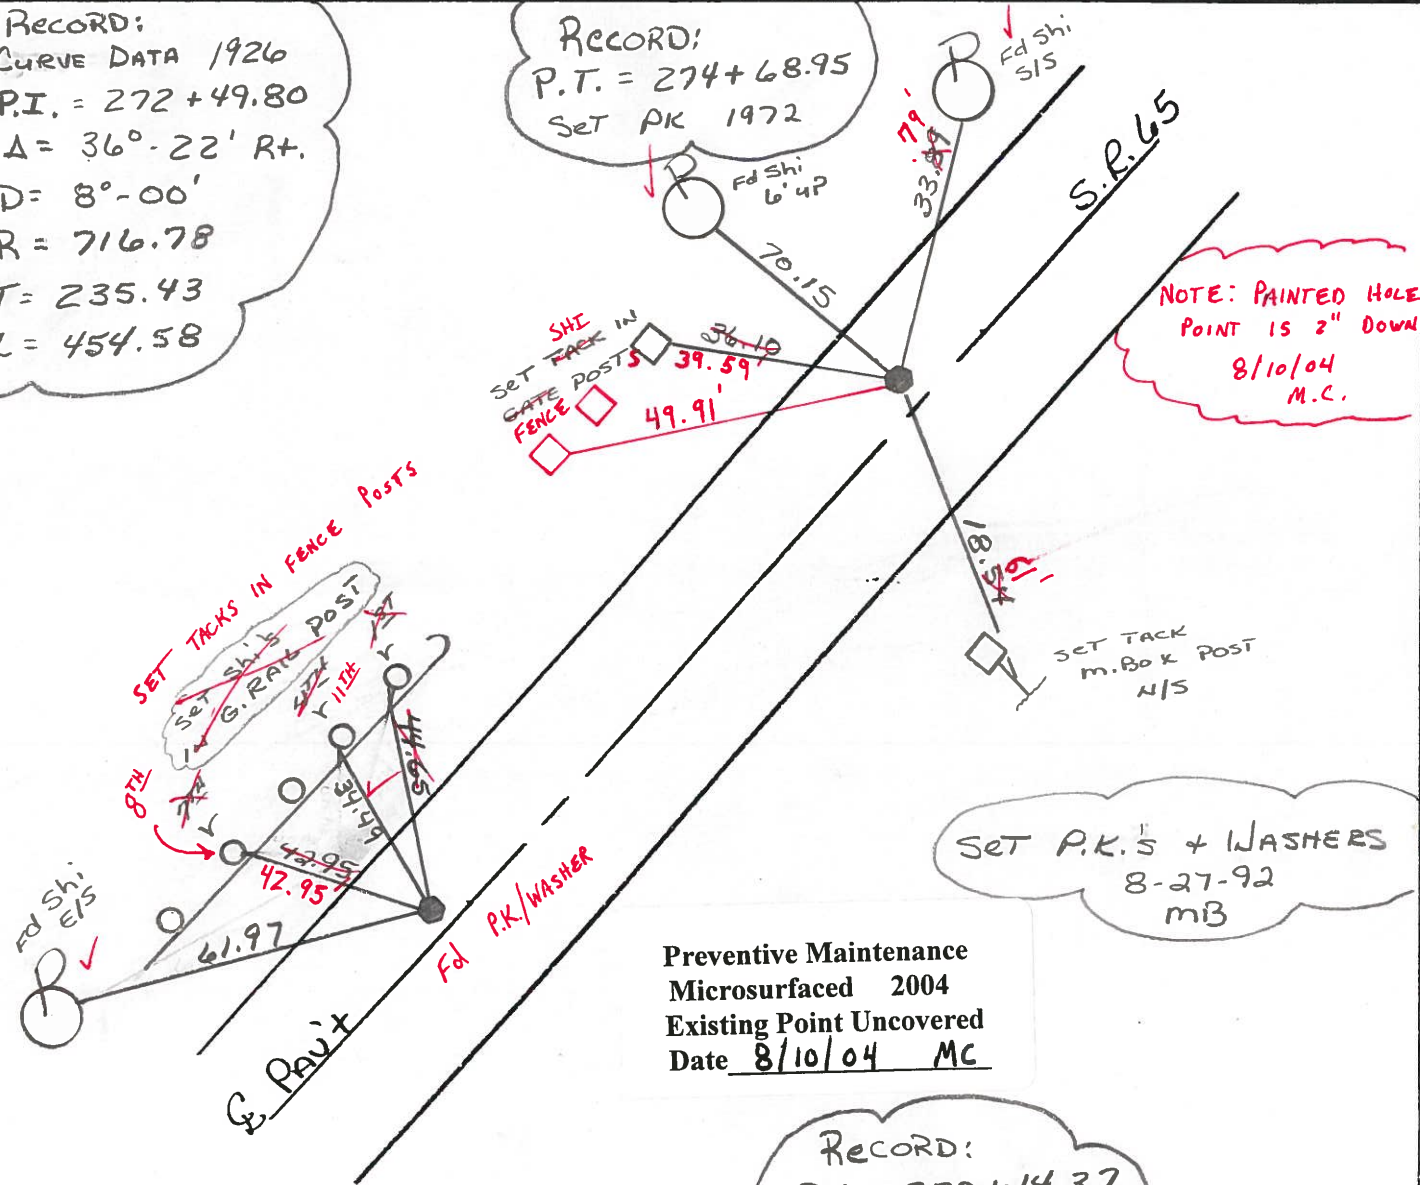 RECORD:
CURVE DATA 1926
P.I. = 272+49.80
Δ = 36°-22' Rt.
D= 8°-00'
R = 716.78
T= 235.43
L = 454.58
RECORD:
P.T. = 274+68.95
SET PK 1972
Fd Shi
S/S
79'
33.89
S.R. 65
Fd Shi
6' up
70.15
NOTE: PAINTED HOLE
POINT IS 2" DOWN
8/10/04
M.C.
SHI
SET TACK IN
GATE POSTS
FENCE
36.10
39.59'
49.91'
18.54
61'
SET TACK
M.BOX POST
N/S
SET TACKS IN FENCE POSTS
SET Shi's
G. RAIL POST
1ST
4TH
11TH
8TH
7TH
44.65
34.49
42.95
42.95'
61.97
Fd Shi
E/S
Fd P.K./WASHER
℄ PAV'T
SET P.K.'s + WASHERS
8-27-92
MB
Preventive Maintenance
Microsurfaced 2004
Existing Point Uncovered
Date 8/10/04 MC
RECORD: